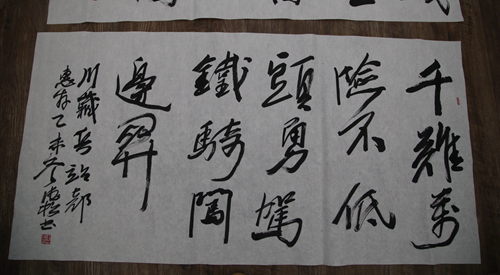 千難萬
險不低
頭勇駕
鐵騎闖
邊關
川藏兵站部
惠存乙未冬書